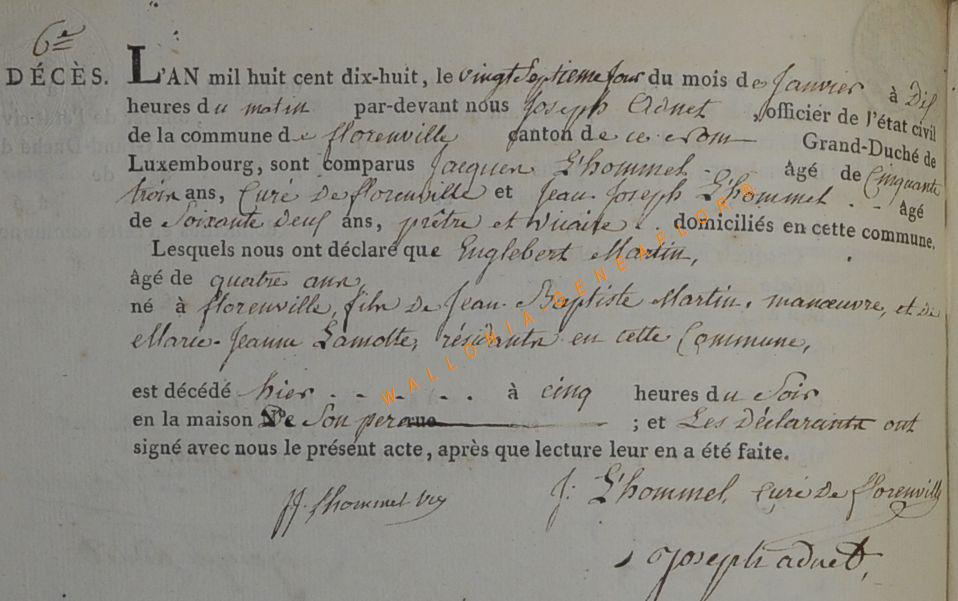 6e
DÉCÈS.
L'AN mil huit cent dix-huit, le vingt Septieme jour du mois de Janvier à Dix
heures du matin par-devant nous Joseph Adnet, officier de l'état civil
de la commune de florenville canton de ce nom Grand-Duché de
Luxembourg, sont comparus Jacques L'hommel - âgé de Cinquante
trois ans, Curé de florenville et Jean-Joseph L'hommel - - âgé
de Soixante deux ans, prêtre et vicaire - . domiciliés en cette commune.
Lesquels nous ont déclaré que Englebert Martin,
âgé de quatre ans
né à florenville, fils de Jean-Baptiste Martin, manœuvre, et de
Marie-Jeanne Lamotte, résidants en cette Commune,
est décédé hier - - - - - à cinq heures du Soir
en la maison De Son pere ; et Les Déclarants ont
signé avec nous le présent acte, après que lecture leur en a été faite.
JJ. lhommel
J: L'hommel, Curé de florenville
Joseph adnet,
WALLONIA.GENEAFLOR©